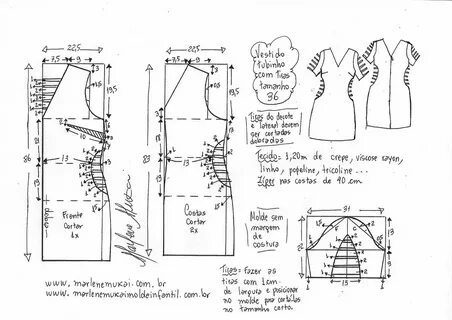 22,5
7,5
9
3
19,5
86
13
13
13
Frente
Cortar
1x
dobra
22,5
7,5
9
3
19,5
83
13
13
13
Costas
Cortar
2x
Marlene Mukai
Vestido
tubinho
com tiras
tamanho
36
Tiras do decote
e lateral devem
ser cortadas
dobradas
Tecido: 1,20m de crepe, viscose rayon,
linho, popeline, tricoline ...
Zíper nas costas de 40 cm.
Molde sem
margem
de
costura
31
Tiras: fazer as
tiras com 1 cm
de largura e posicionar
no molde para cortá-las
no tamanho certo.
www.marlenemukai.com.br
www.marlenemukaimoldeinfantil.com.br